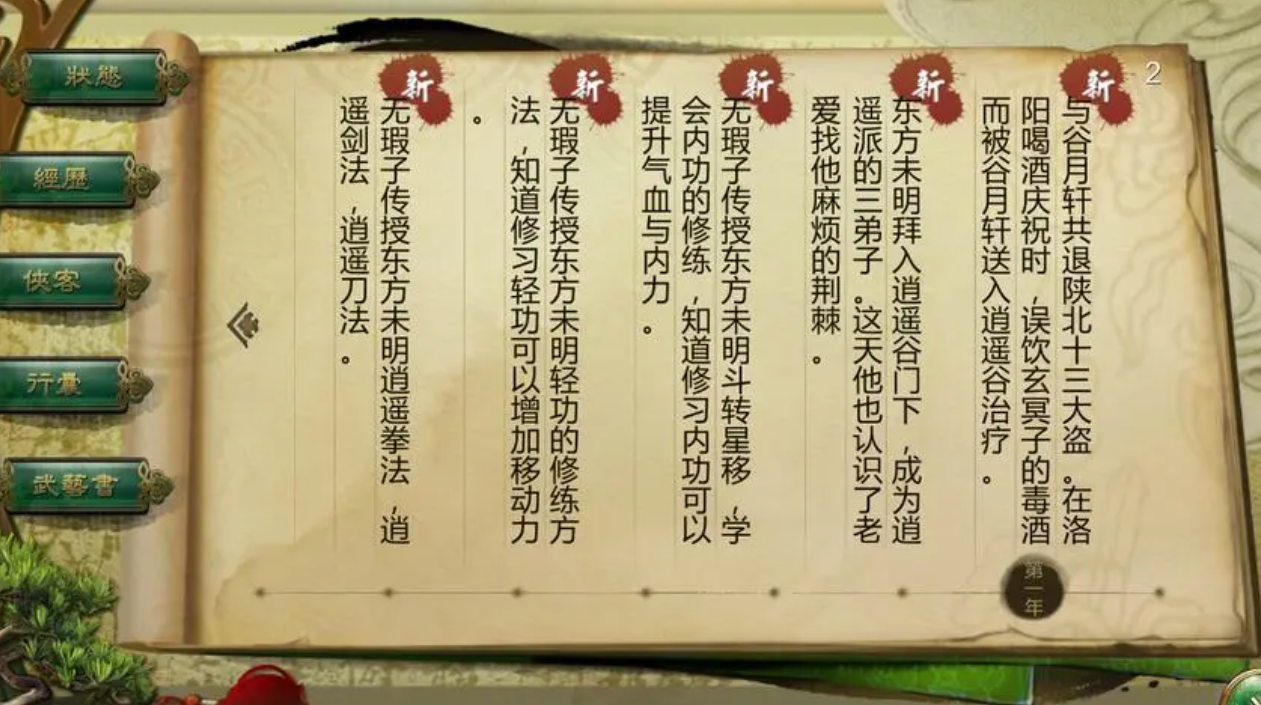 狀態
經歷
俠客
行囊
武藝書
2
新
与谷月轩共退陕北十三大盗。在洛
阳喝酒庆祝时，误饮玄冥子的毒酒
而被谷月轩送入逍遥谷治疗。
新
东方未明拜入逍遥谷门下，成为逍
遥派的三弟子。这天他也认识了老
爱找他麻烦的荆棘。
新
无瑕子传授东方未明斗转星移，学
会内功的修练，知道修习内功可以
提升气血与内力。
新
无瑕子传授东方未明轻功的修练方
法，知道修习轻功可以增加移动力
。
新
无瑕子传授东方未明逍遥拳法，逍
遥剑法，逍遥刀法。
第一年